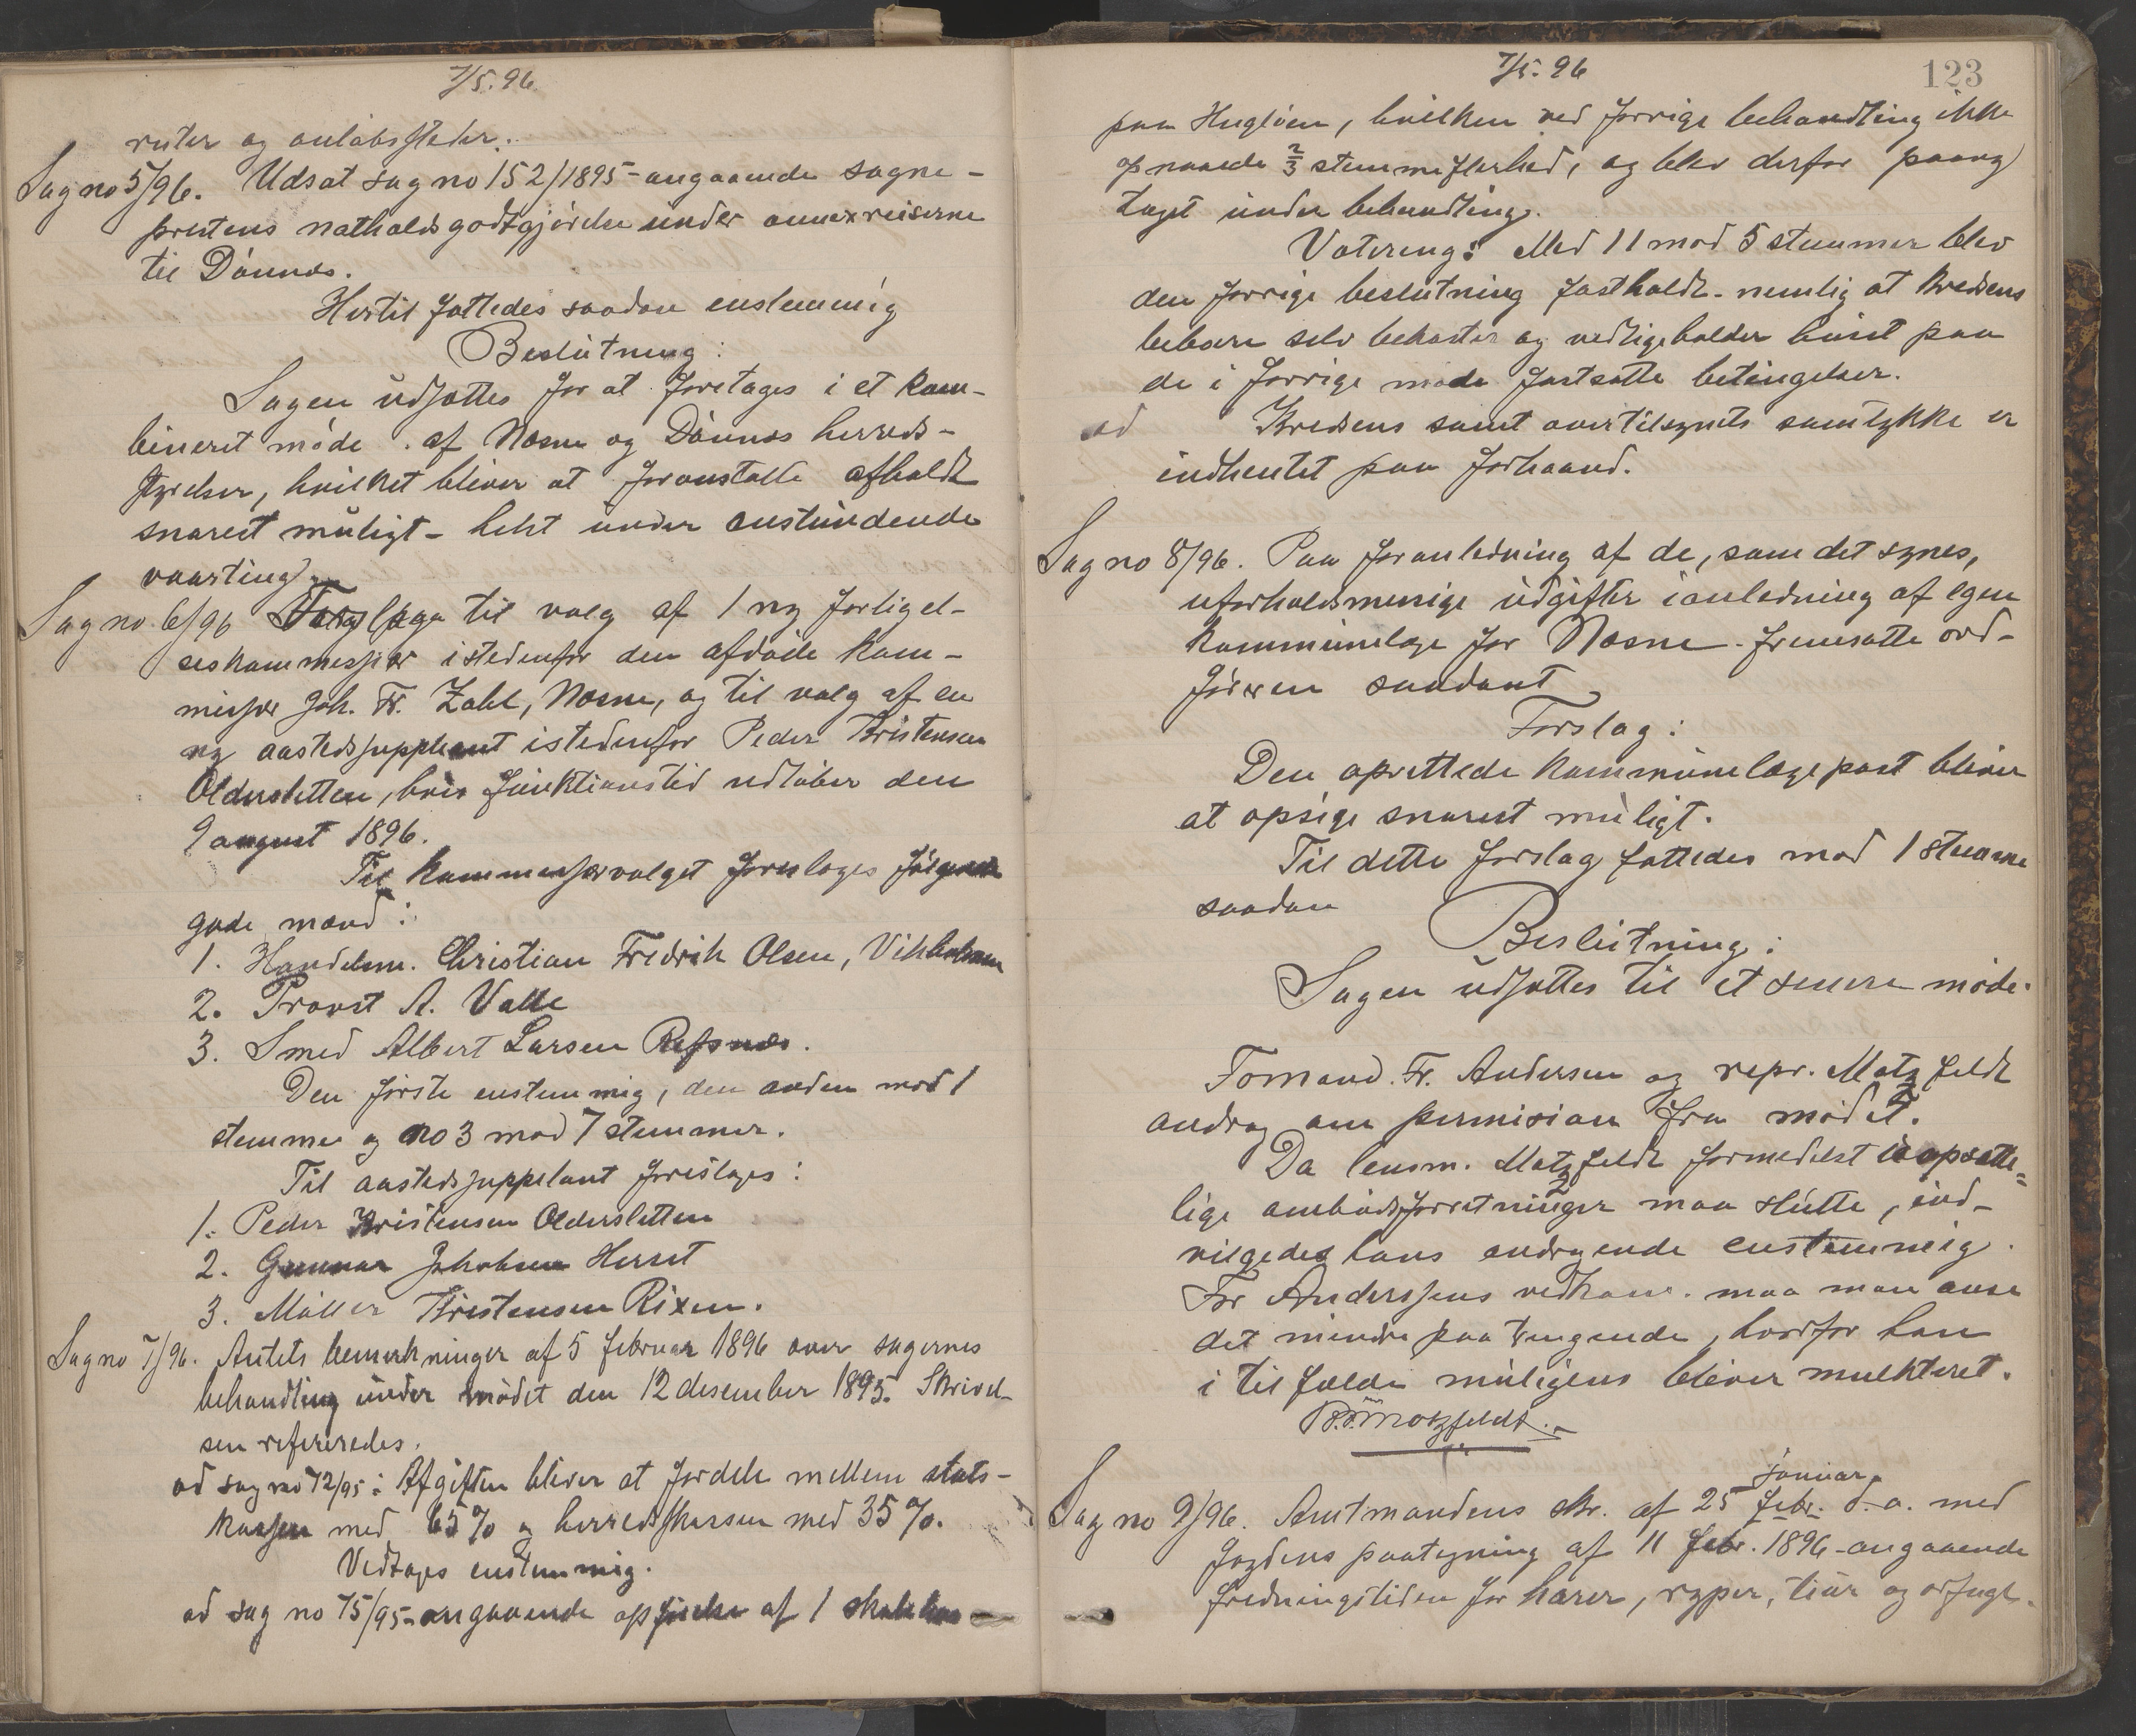 7/5. 96.
ruter og anløbssteder.
Sag no 5/96. Udsat sag no 152/1895 - angaaende sogne-
prestens natholdsgodtgjørelse under annexreiserne
til Dønnes.
Hertil fattedes saadan enstemmig
Beslutning:
Sagen udsættes for at foretages i et kom-
bineret møde af Nesne og Dønnes herreds-
styrelser, hvilket bliver at foranstalte afholdt
snarest muligt - helst under anstundende
vaarting.
Sag no 6/96 Forslag til valg af 1 ny forligel-
seskommissær istedenfor den afdøde kom-
missær Joh. Fr. Zahl, Nesne, og til valg af en
ny aastedssuppleant istedenfor Peder Kristensen
Oldersletten, hvis funktionstid udløber den
9 august 1896.
Til kommissærvalget foreslages følgende
gode mænd:
1. Handelsm. Christian Fredrik Olsen, Vikholmen
2. Provst A. Valle
3. Smed Albert Larsen Refsnes.
Den første enstemmig, den anden mod 1
stemme og no 3 mod 7 stemmer.
Til aastedssuppelant foreslages:
1. Peder Kristensen Oldersletten
2. Gunnar Jakobsen
3. Møller Kristensen
Sag no 7/96. Amtets bemerkninger af 5 februar 1896 over sagernes
behandling under mødet den 12 desember 1895. Skrivel-
sen refereredes.
ad sag no 72/95: Afgiften bliver at fordele mellem stats-
kassen med 65 % og herredskassen med 35 %.
Vedtages enstemmig.
ad sag no 75/95 - angaaende opførelse af 1 skolehus
7/5. 96
123
paa Hugløen, hvilken ved forrige behandling ikke
opnaaede 2/3 stemmeflerhed, og blev derfor paany
taget under behandling.
Votering: Med 11 mod 5 stemmer blev
den forrige beslutning fastholdt - nemlig at kredsens
beboere selv bekoster og vedligeholder huset paa
de i forrige møde fastsatte betingelser.
ad Kredsens samt overtilsynets samtykke er
indhentet paa forhaand.
Sag no 8/96. Paa foranledning af de, som det synes,
uforholdsmesige udgifter ianledning af egen
kommunelæge for Nesne - fremsatte ord-
føreren saadant
Forslag:
Den oprettede kommunelægepost bliver
at opsige snarest muligt.
Til dette forslag fattedes mod 1 stemme
saadan
Beslutning:
Sagen udsættes til et senere møde.
Formand. Fr. Andersen og repr. Motzfeldt
androg om permision fra mødet.
Da lensm. Motzfeldt formedelst uopsætte-
lige ambudsforretninger maa slutte, ind-
vilgedes hans andragende enstemmig.
For Anderssens vedkom. maa man anse
det mindre paatrengende, hvorfor han
i tilfælde muligens bliver mulkteret.
Motzfeldt.
januar
Sag no 9/96. Amtmandens skr. af 25 febr. d.a. med
fogdens paategning af 11 febr. 1896 - angaaende
fredningstiden for harer, ryper, tiur og orfugl.